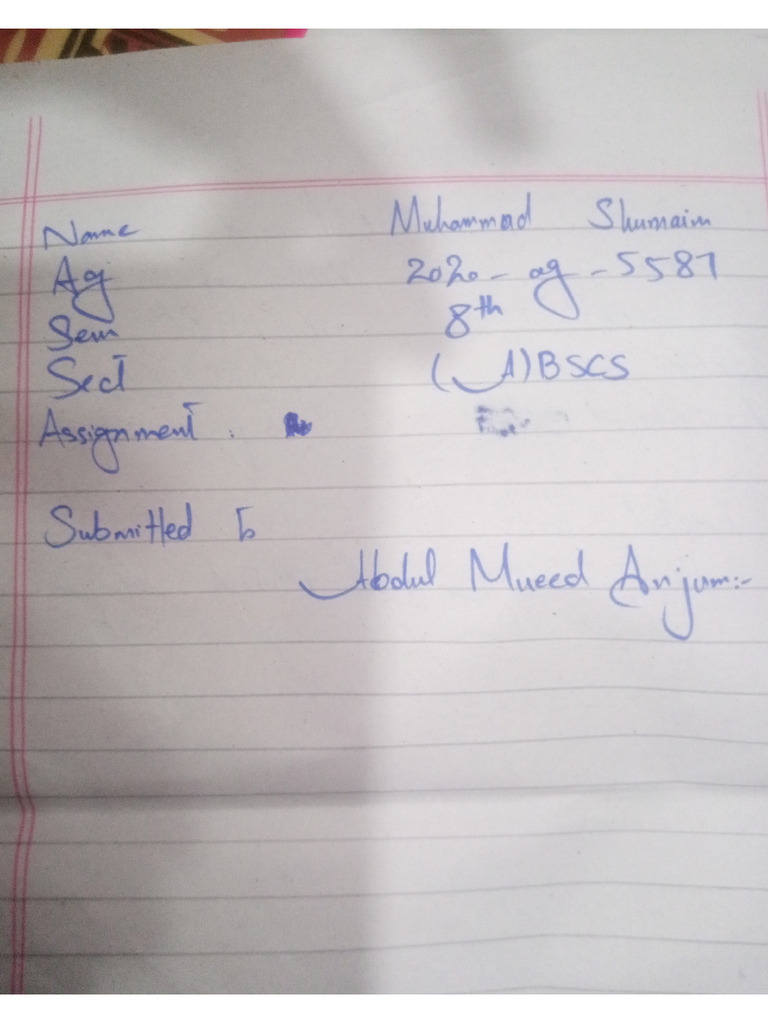 Name Muhammad Shumaim
Ag 2020-ag-5587
Sem 8th
Sect (A) BSCS
Assignment :
Submitted to
Abdul Mueed Anjum:-